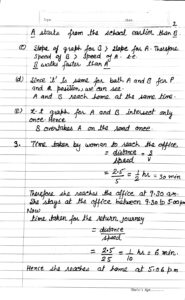 2
A starts from the school earlier than B.
(c) Slope of graph for B > slope for A. Therefore
Speed of B > speed of A. i.e.
B walks faster than A
(d) Since 't' is same for both A and B for P
and Q position, we can see
A and B reach home at the same time.
(e) x-t graph for A and B intersect only
once. Hence
B overtakes A on the road once
3. Time taken by woman to reach the office
= distance
speed
= 2.5 = 1 hr = 30 min
5 2
Therefore she reaches the office at 9.30 a.m.
She stays at the office between 9.30 to 5.00 pm
Now
time taken for the return journey
= distance
speed
= 2.5 = 1 hr = 6 min.
25 10
Hence she reaches at home at 5.06 pm